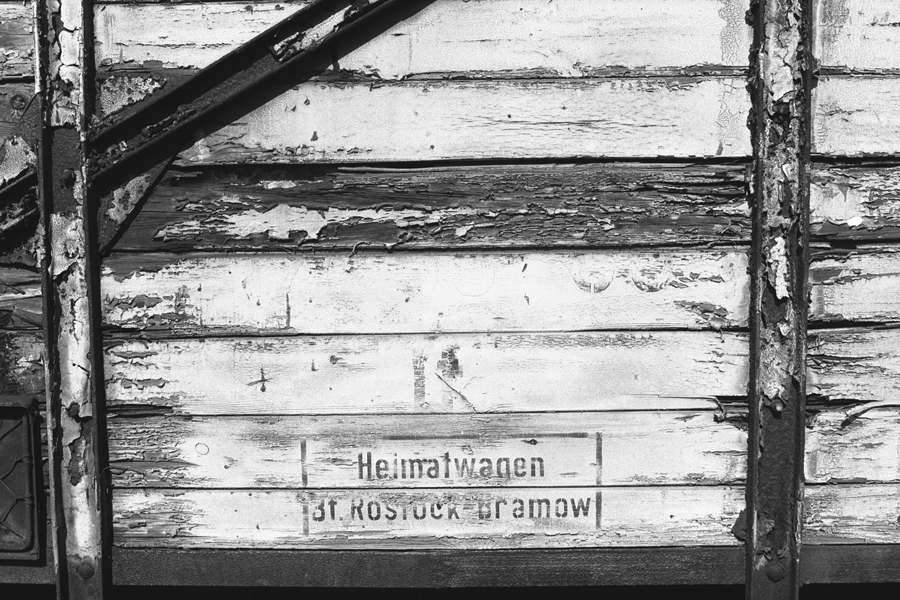 Heimatwagen
Bf. Rostock-Bramow